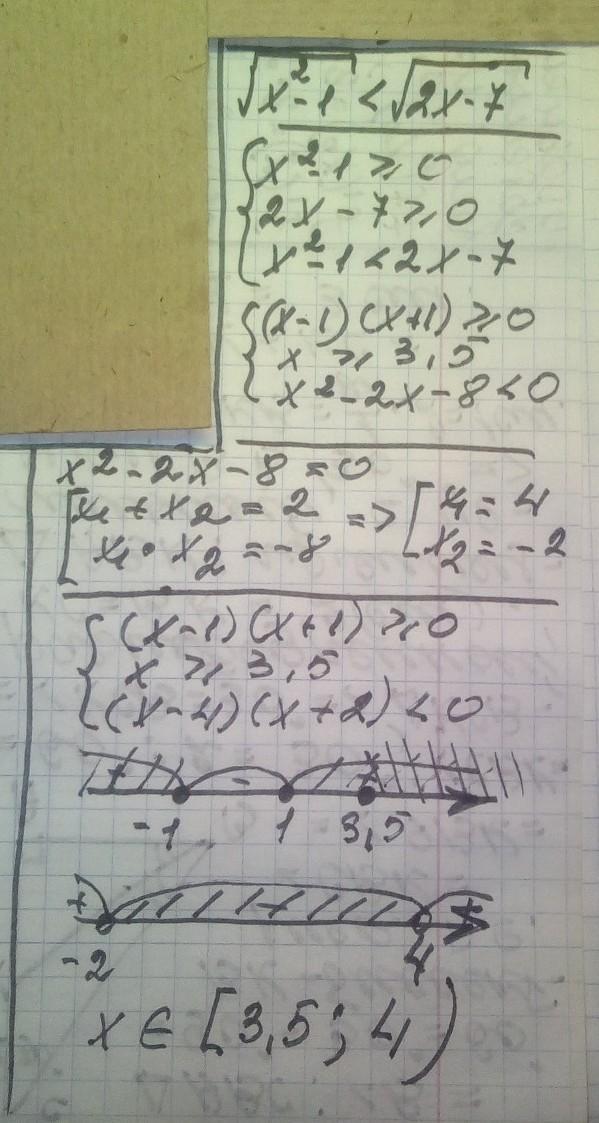 √x²-1 < √2x-7
{ x²-1 ≥ 0
2x - 7 ≥ 0
x²-1 < 2x - 7
{ (x-1)(x+1) ≥ 0
x ≥ 3,5
x² - 2x - 8 < 0
x² - 2x - 8 = 0
[ x₁ + x₂ = 2 => [ x₁ = 4
x₁ • x₂ = -8 x₂ = -2
{ (x-1)(x+1) ≥ 0
x ≥ 3,5
(x-4)(x+2) < 0
+ -
-1 1 3,5
+ - +
-2 4
x ∈ [3,5; 4)